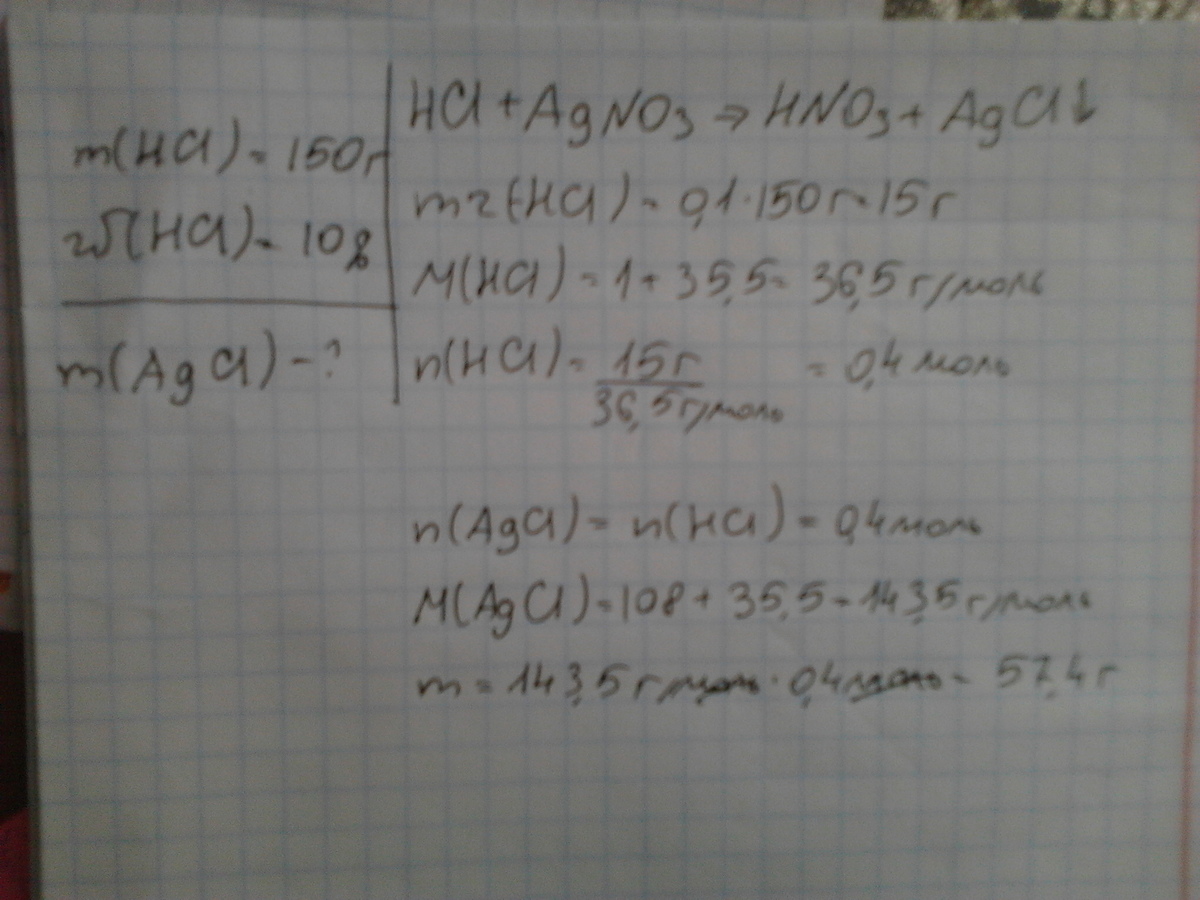 m(HCl) = 150г
w(HCl) = 10%
m(AgCl) - ?
HCl + AgNO3 → HNO3 + AgCl↓
mг(HCl) = 0,1 · 150г = 15г
M(HCl) = 1 + 35,5 = 36,5 г/моль
n(HCl) = 15г / 36,5 г/моль = 0,4 моль
n(AgCl) = n(HCl) = 0,4 моль
M(AgCl) = 108 + 35,5 = 143,5 г/моль
m = 143,5 г/моль · 0,4 моль = 57,4 г